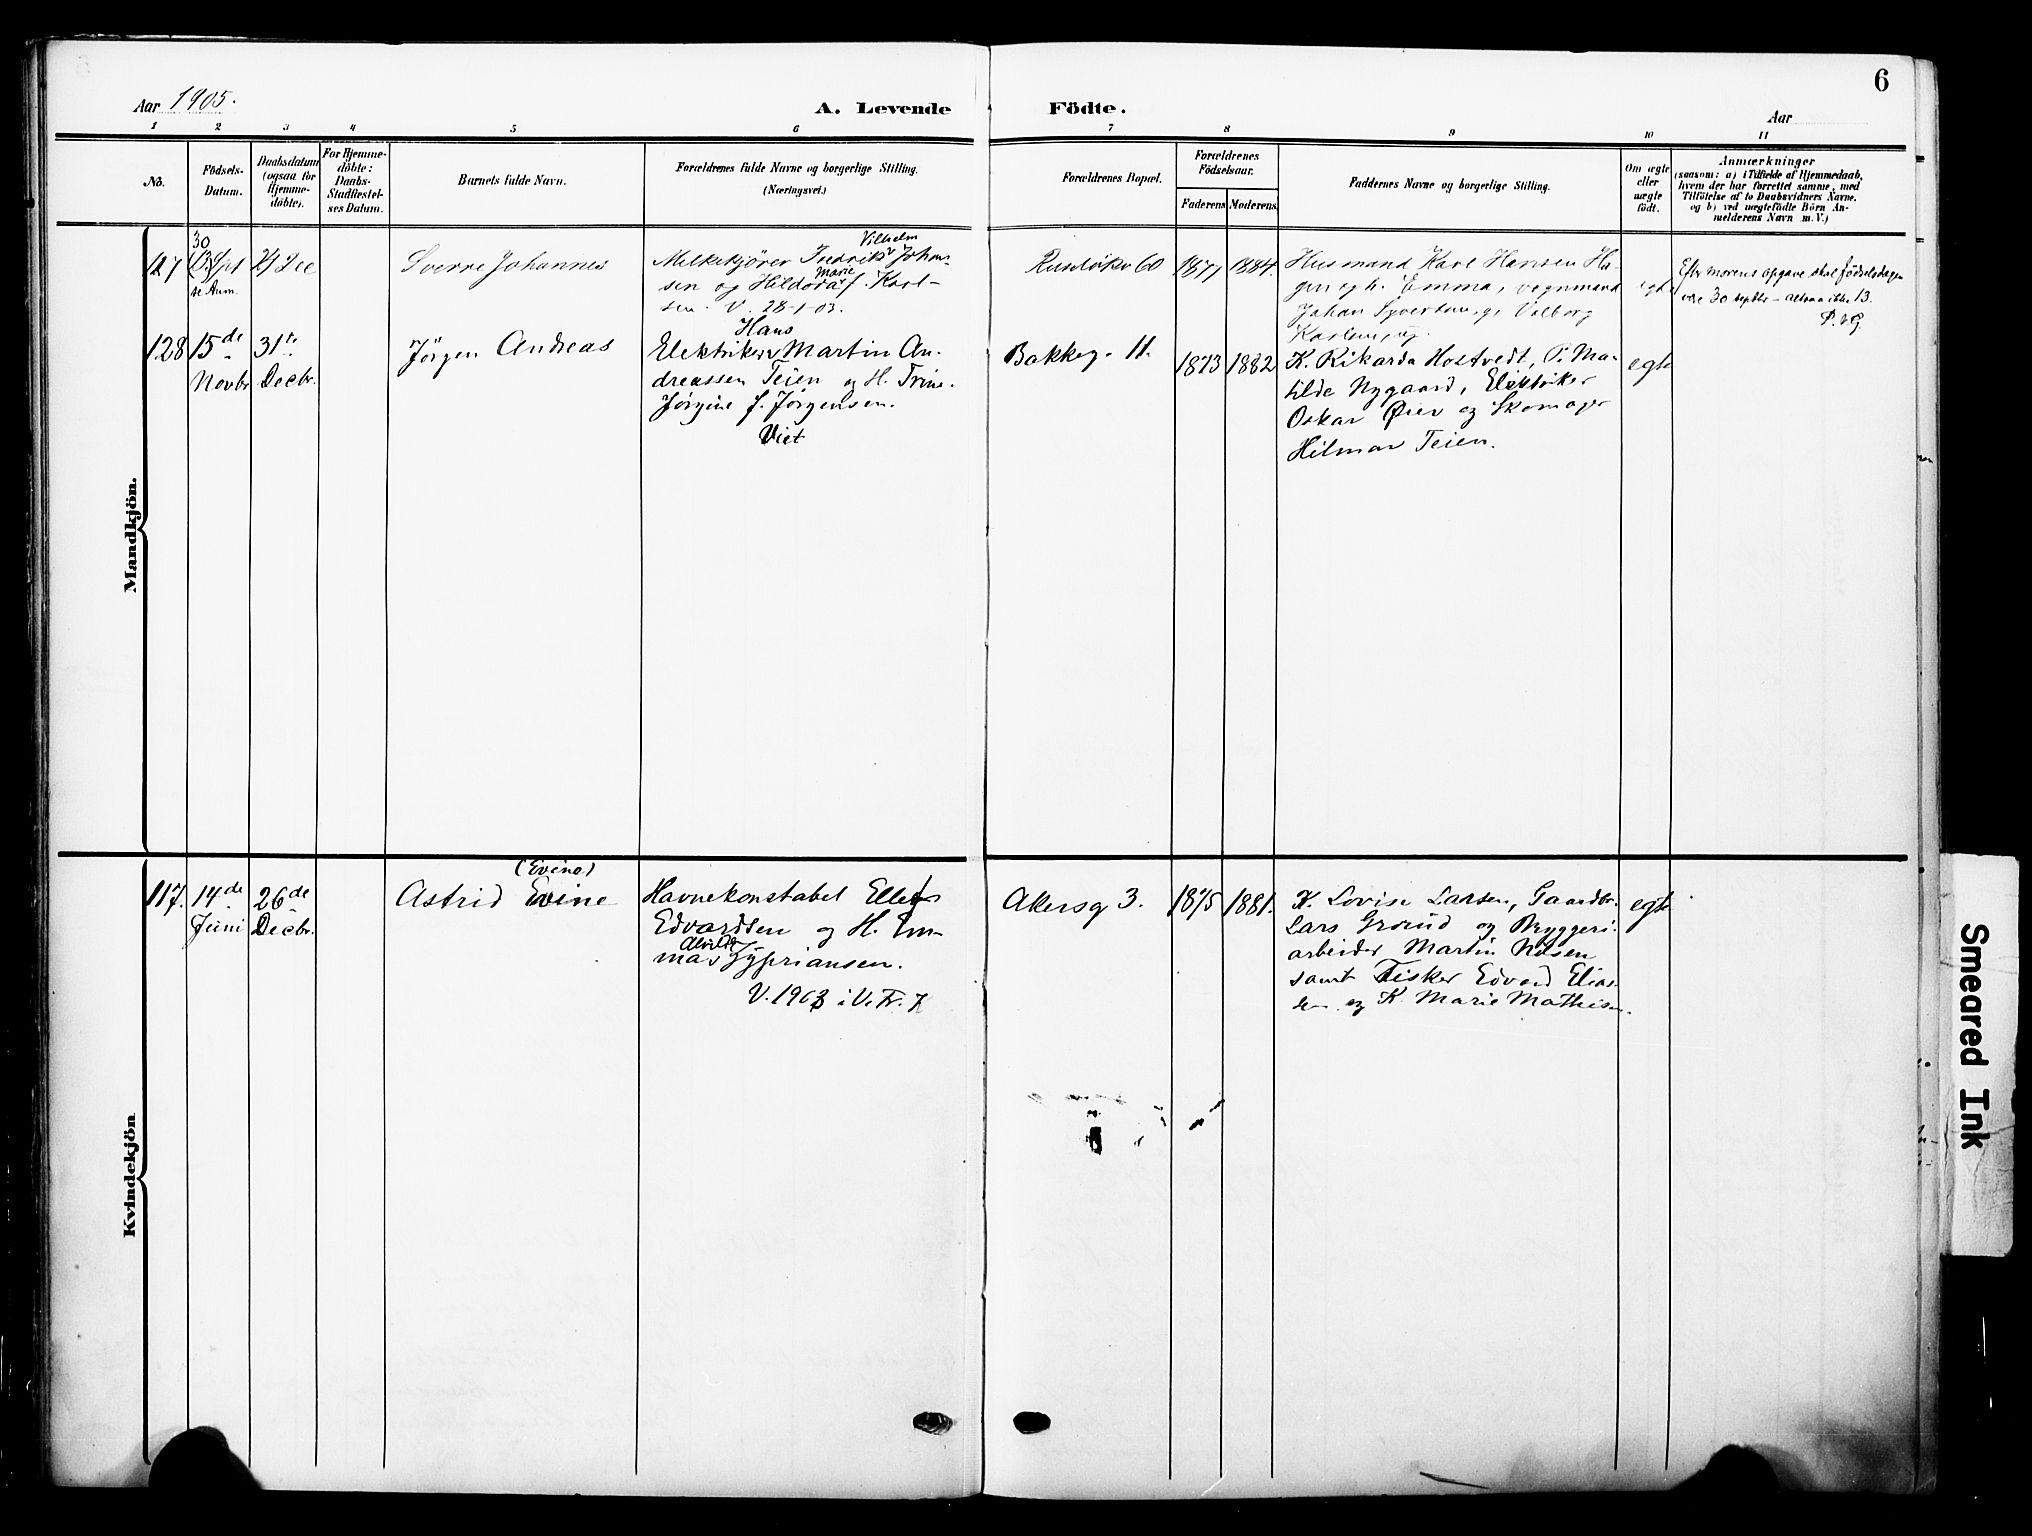 6
Aar 1905.
A. Levende Födte.
Aar
1 2 3 4 5 6 7 8 9 10 11
No.
Födsels-
Datum.
Daabsdatum
(ogsaa for
Hjemme-
döbte).
For Hjemme-
döbte:
Daabs-
Stadfæstel-
ses Datum.
Barnets fulde Navn.
Forældrenes fulde Navne og borgerlige Stilling.
(Næringsvei.)
Forældrenes Bopæl.
Forældrenes
Födselsaar.
Faderens
Moderens
Faddernes Navne og borgerlige Stilling.
Om ægte
eller
uægte
födt.
Anmærkninger
(saasom: a) i Tilfælde af Hjemmedaab,
hvem der har forrettet samme, med
Tilföielse af to Daabsvidners Navne.
og b) ved uægtefödte Börn An-
melderens Navn m. V.)
Mandkjön.
127
30
13 Spt
se Anm.
Sverre Johannes
Vilhelm
Melkekjører Fredrik Johan-
Marie
sen og Hildora f. Karl-
sen. V. 28-1-03.
Ruseløkv 60
1877
1884.
Husmand Karl Hansen Ha-
gen og h. Emma, vognmand
Johan
Valborg
Karlsen,
egte
Efter morens opgave skal fødselsdagen
være 30 septbr - altsaa ikke 13.
128
15de
Novbr
31te
Decbr.
Jørgen Andreas
Hans
Elektriker Martin An-
dreassen Teien og H. Trine
Jørgine f. Jørgensen.
Viet
Bakkeg. 11.
1873
1882
K. Rikarda Hostvedt, P. Ma-
tilde Nygaard, Elektriker
Oskar Øier og Skomager
Hilmar Teien.
egte
Kvindekjön
117.
14de
Juni
26de
Decbr.
(Evine)
Astrid Evine
Havnekonstabel Ellef
Edvardsen og H. Em-
Alvilde
ma Zypriansen.
V. 1903 i V. Fr. K
Akersg 3.
1875
1881.
K. Lovise Larsen, Gaardbr.
Lars Grorud og Bryggeri-
arbeider Martin Nilsen
samt Fisker Edvard Elias-
sen og K. Marie Mathisen.
egte
Smeared Ink